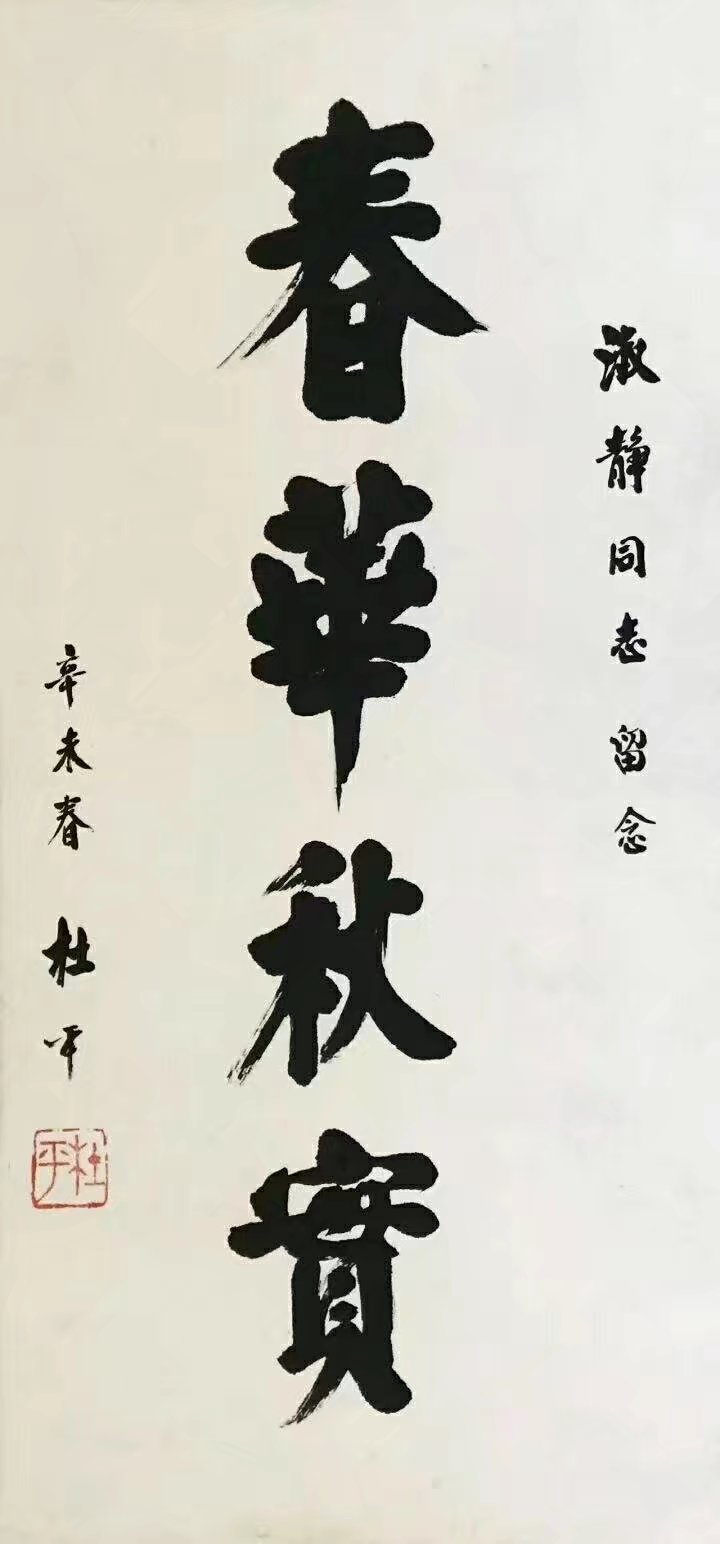 淑静同志留念
春華秋實
辛未春 杜平
杜平